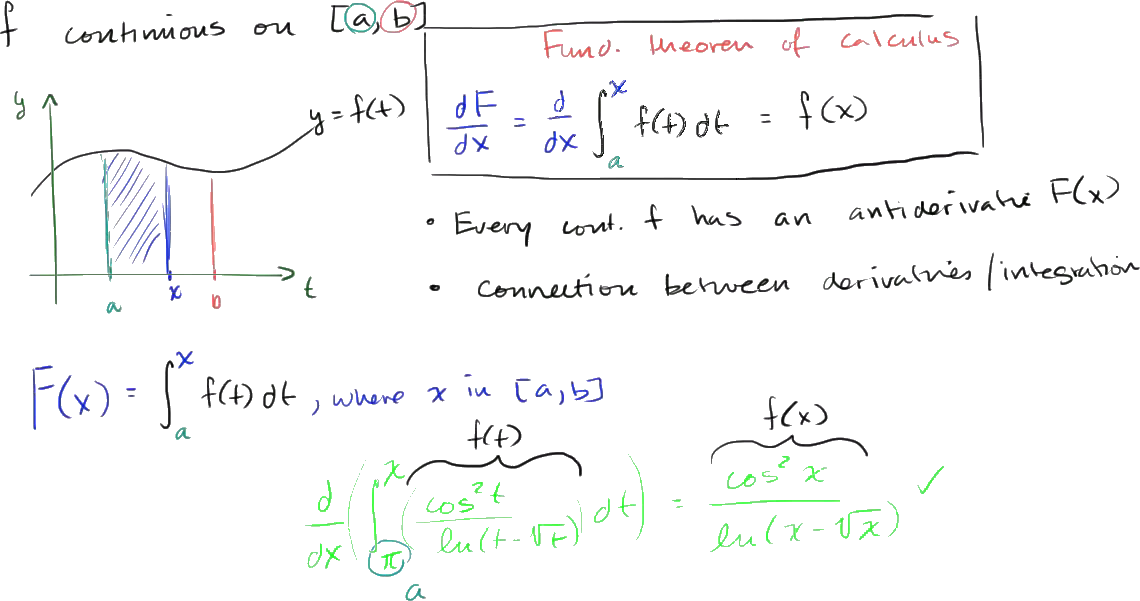 f continuous on [a, b]
Fund. theorem of calculus
y
y = f(t)
dF/dx = d/dx ∫_a^x f(t) dt = f(x)
• Every cont. f has an antiderivative F(x)
a x b t
• connection between derivatives/integration
F(x) = ∫_a^x f(t) dt, where x in [a, b]
f(t) f(x)
d/dx (∫_π^x (cos² t / ln(t - √t)) dt) = cos² x / ln(x - √x) ✓
a